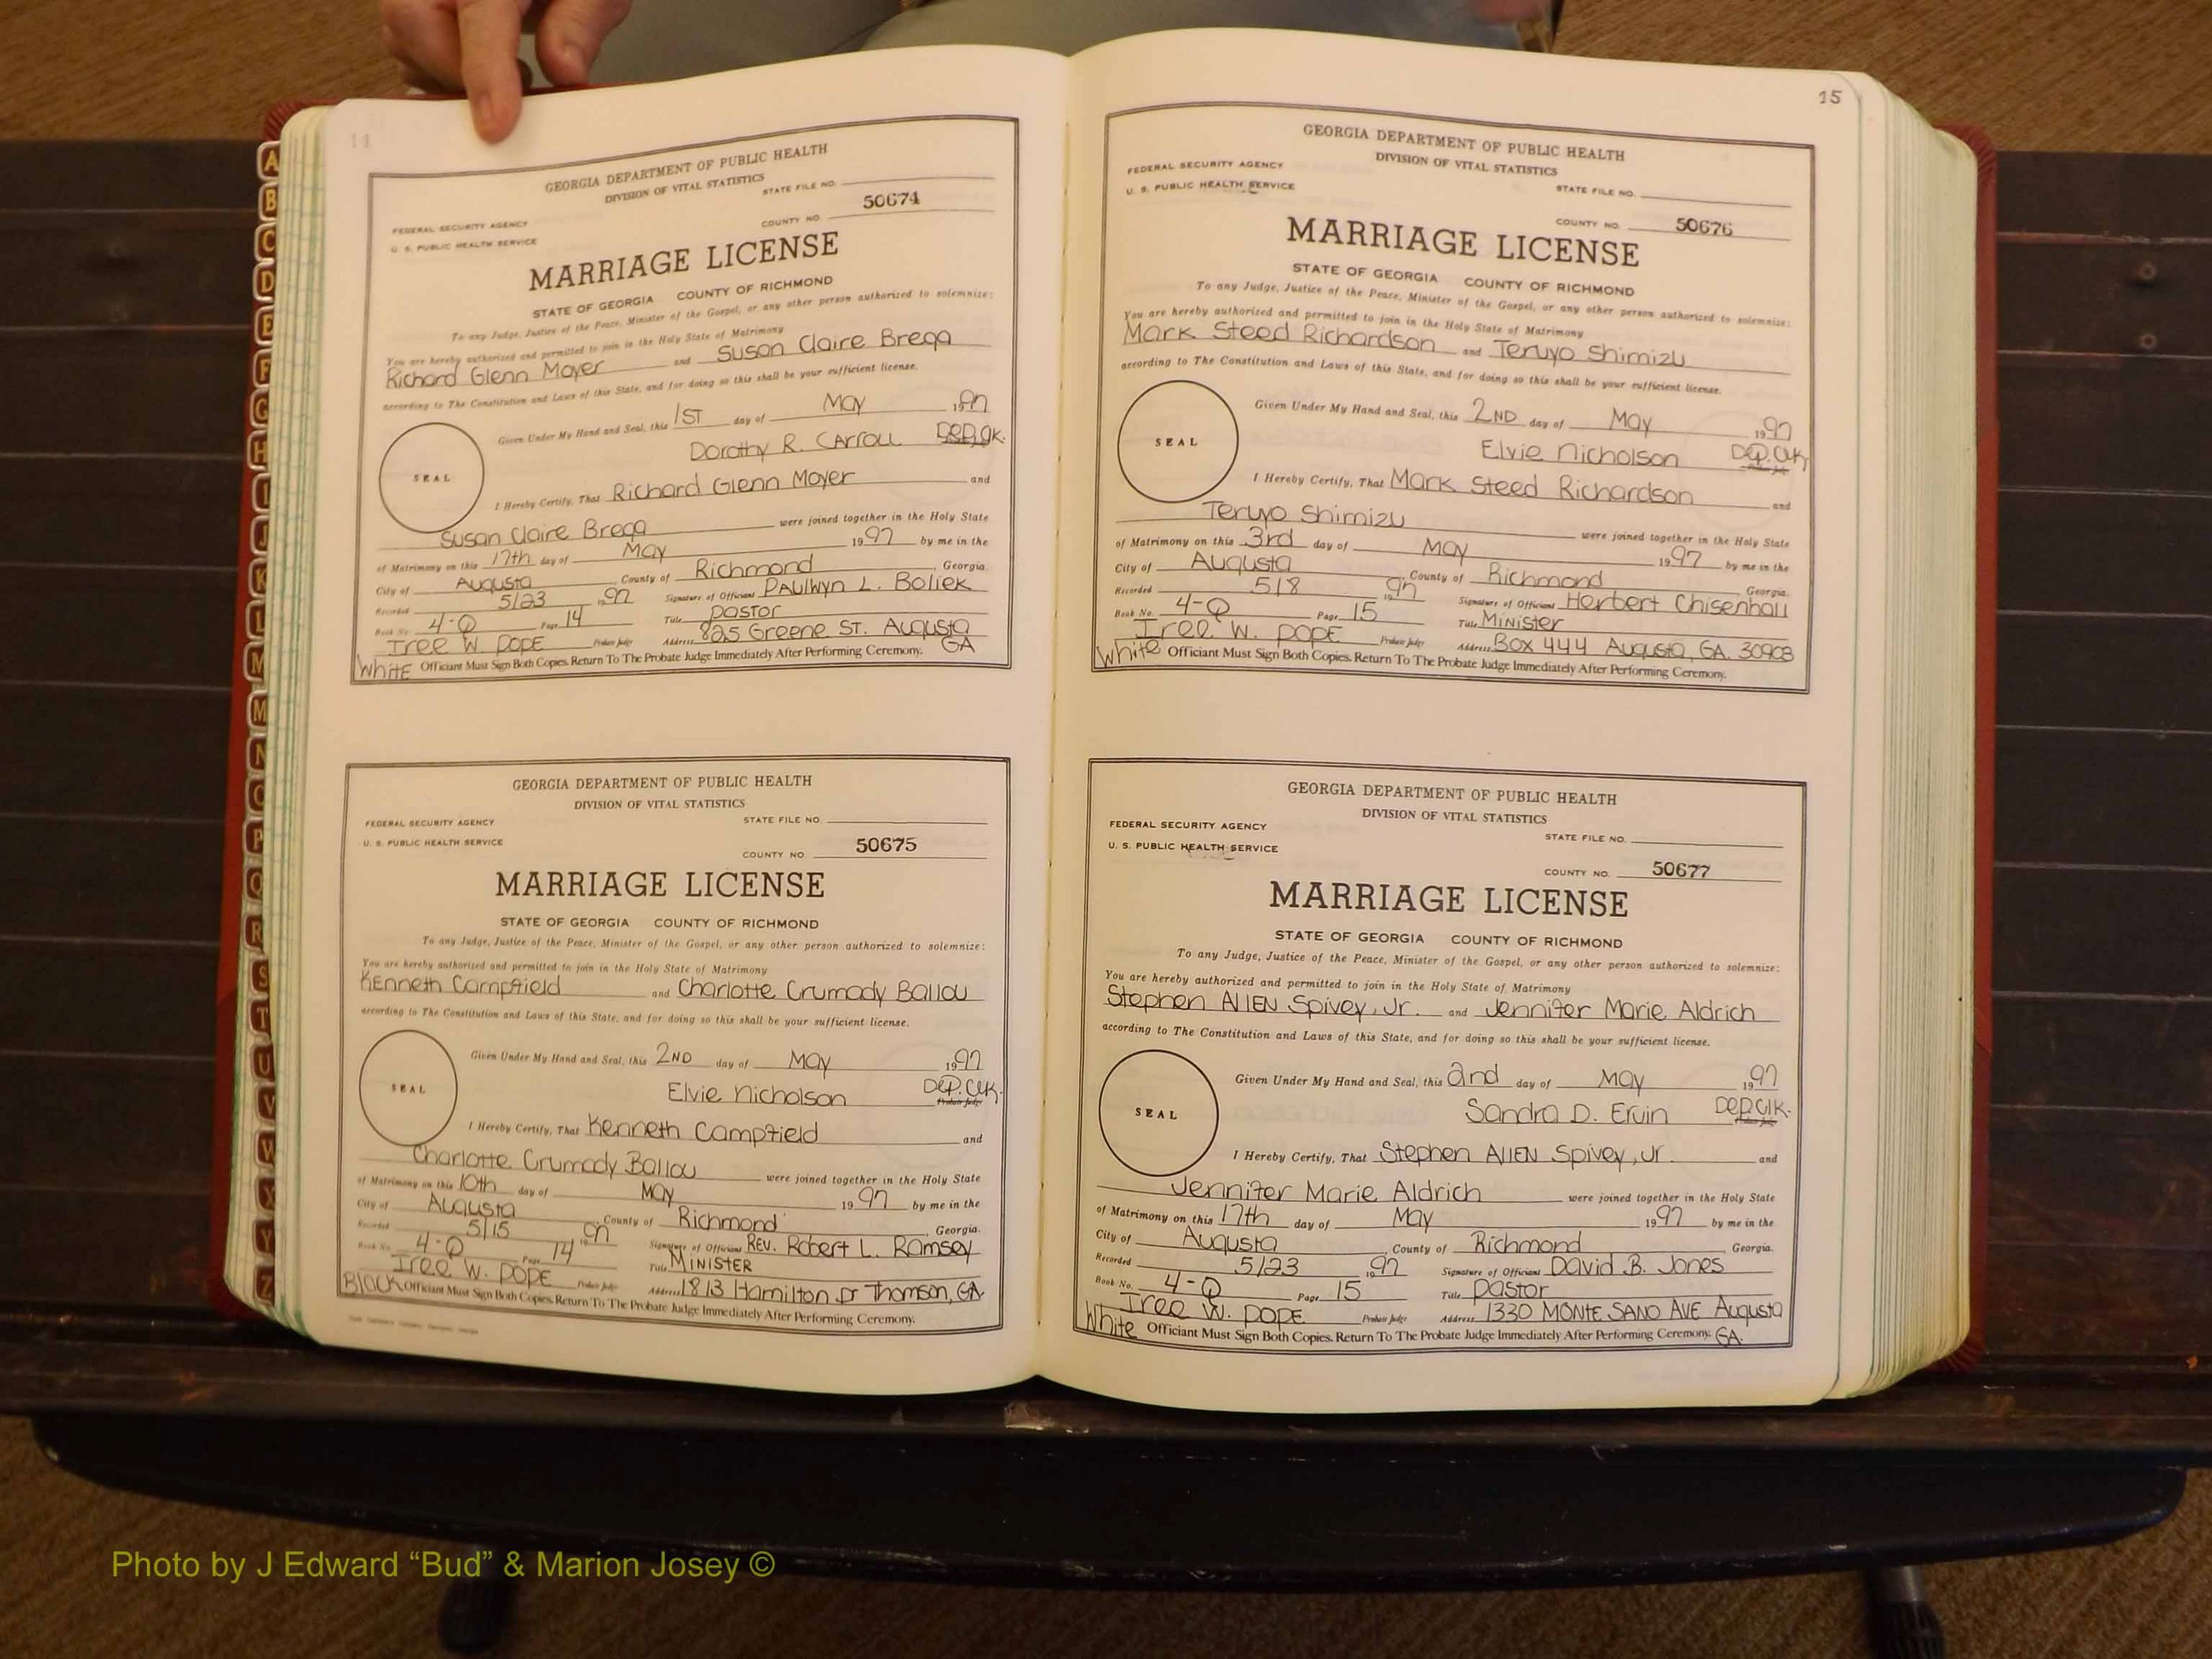 14
GEORGIA DEPARTMENT OF PUBLIC HEALTH
DIVISION OF VITAL STATISTICS
STATE FILE NO.
FEDERAL SECURITY AGENCY
U. S. PUBLIC HEALTH SERVICE
COUNTY NO. 50674
MARRIAGE LICENSE
STATE OF GEORGIA COUNTY OF RICHMOND
To any Judge, Justice of the Peace, Minister of the Gospel, or any other person authorized to solemnize:
You are hereby authorized and permitted to join in the Holy State of Matrimony
Richard Glenn Moyer and Susan Claire Brega
according to The Constitution and Laws of this State, and for doing so this shall be your sufficient license.
Given Under My Hand and Seal, this 1ST day of May 1997
Dorothy R. Carroll Dep. Clk.
SEAL
I Hereby Certify, That Richard Glenn Moyer and
Susan Claire Brega were joined together in the Holy State
of Matrimony on this 17th day of May 1997 by me in the
City of Augusta County of Richmond, Georgia.
Recorded 5/23 1997 Signature of Officiant Paulwyn L. Boliek
Book No. 4-Q Page 14 Title Pastor
Tree W. Pope Probate Judge Address 825 Greene ST. Augusta GA
White Officiant Must Sign Both Copies. Return To The Probate Judge Immediately After Performing Ceremony.
GEORGIA DEPARTMENT OF PUBLIC HEALTH
DIVISION OF VITAL STATISTICS
FEDERAL SECURITY AGENCY STATE FILE NO.
U. S. PUBLIC HEALTH SERVICE
COUNTY NO 50675
MARRIAGE LICENSE
STATE OF GEORGIA COUNTY OF RICHMOND
To any Judge, Justice of the Peace, Minister of the Gospel, or any other person authorized to solemnize:
You are hereby authorized and permitted to join in the Holy State of Matrimony
Kenneth Campfield and Charlotte Crumady Ballou
according to The Constitution and Laws of this State, and for doing so this shall be your sufficient license.
Given Under My Hand and Seal, this 2ND day of May 1997
Elvie Nicholson Dep. Clk.
Probate Judge
SEAL
I Hereby Certify, That Kenneth Campfield and
Charlotte Crumady Ballou were joined together in the Holy State
of Matrimony on this 10th day of May 1997 by me in the
City of Augusta, County of Richmond, Georgia.
Recorded 5/15 1997 Signature of Officiant Rev. Robert L. Ramsey
Book No. 4-Q Page 14 Title Minister
Tree W. Pope Probate Judge Address 1813 Hamilton Dr Thomson, GA.
Black Officiant Must Sign Both Copies. Return To The Probate Judge Immediately After Performing Ceremony.
15
GEORGIA DEPARTMENT OF PUBLIC HEALTH
DIVISION OF VITAL STATISTICS
FEDERAL SECURITY AGENCY
U. S. PUBLIC HEALTH SERVICE
STATE FILE NO.
COUNTY NO. 50676
MARRIAGE LICENSE
STATE OF GEORGIA COUNTY OF RICHMOND
To any Judge, Justice of the Peace, Minister of the Gospel, or any other person authorized to solemnize:
You are hereby authorized and permitted to join in the Holy State of Matrimony
Mark Steed Richardson and Teruyo Shimizu
according to The Constitution and Laws of this State, and for doing so this shall be your sufficient license.
Given Under My Hand and Seal, this 2ND day of May 1997
Elvie Nicholson Dep. Clk.
Probate Judge
SEAL
I Hereby Certify, That Mark Steed Richardson and
Teruyo Shimizu were joined together in the Holy State
of Matrimony on this 3rd day of May 1997 by me in the
City of Augusta, County of Richmond Georgia.
Recorded 5/8 1997 Signature of Officiant Herbert Chisenhall
Book No. 4-Q Page 15 Title Minister
Tree W. Pope Probate Judge Address Box 444 Augusta, GA. 30903
White Officiant Must Sign Both Copies. Return To The Probate Judge Immediately After Performing Ceremony.
GEORGIA DEPARTMENT OF PUBLIC HEALTH
DIVISION OF VITAL STATISTICS
FEDERAL SECURITY AGENCY
STATE FILE NO.
U. S. PUBLIC HEALTH SERVICE
COUNTY NO. 50677
MARRIAGE LICENSE
STATE OF GEORGIA COUNTY OF RICHMOND
To any Judge, Justice of the Peace, Minister of the Gospel, or any other person authorized to solemnize:
You are hereby authorized and permitted to join in the Holy State of Matrimony
Stephen Allen Spivey, Jr. and Jennifer Marie Aldrich
according to The Constitution and Laws of this State, and for doing so this shall be your sufficient license.
Given Under My Hand and Seal, this 2nd day of May 1997
Sandra D. Ervin Dep. Clk.
Probate Judge
SEAL
I Hereby Certify, That Stephen Allen Spivey, Jr. and
Jennifer Marie Aldrich were joined together in the Holy State
of Matrimony on this 17th day of May 1997 by me in the
City of Augusta, County of Richmond, Georgia.
Recorded 5/23 1997 Signature of Officiant David B. Jones
Book No. 4-Q Page 15 Title Pastor
Tree W. Pope Probate Judge Address 1330 Monte Sano Ave Augusta
White Officiant Must Sign Both Copies. Return To The Probate Judge Immediately After Performing Ceremony. GA.
A
B
C
D
E
F
G
H
I
J
K
L
M
M
N
O
P
Q
R
S
T
U
V
W
X
Y
Z
Photo by J Edward “Bud” & Marion Josey ©